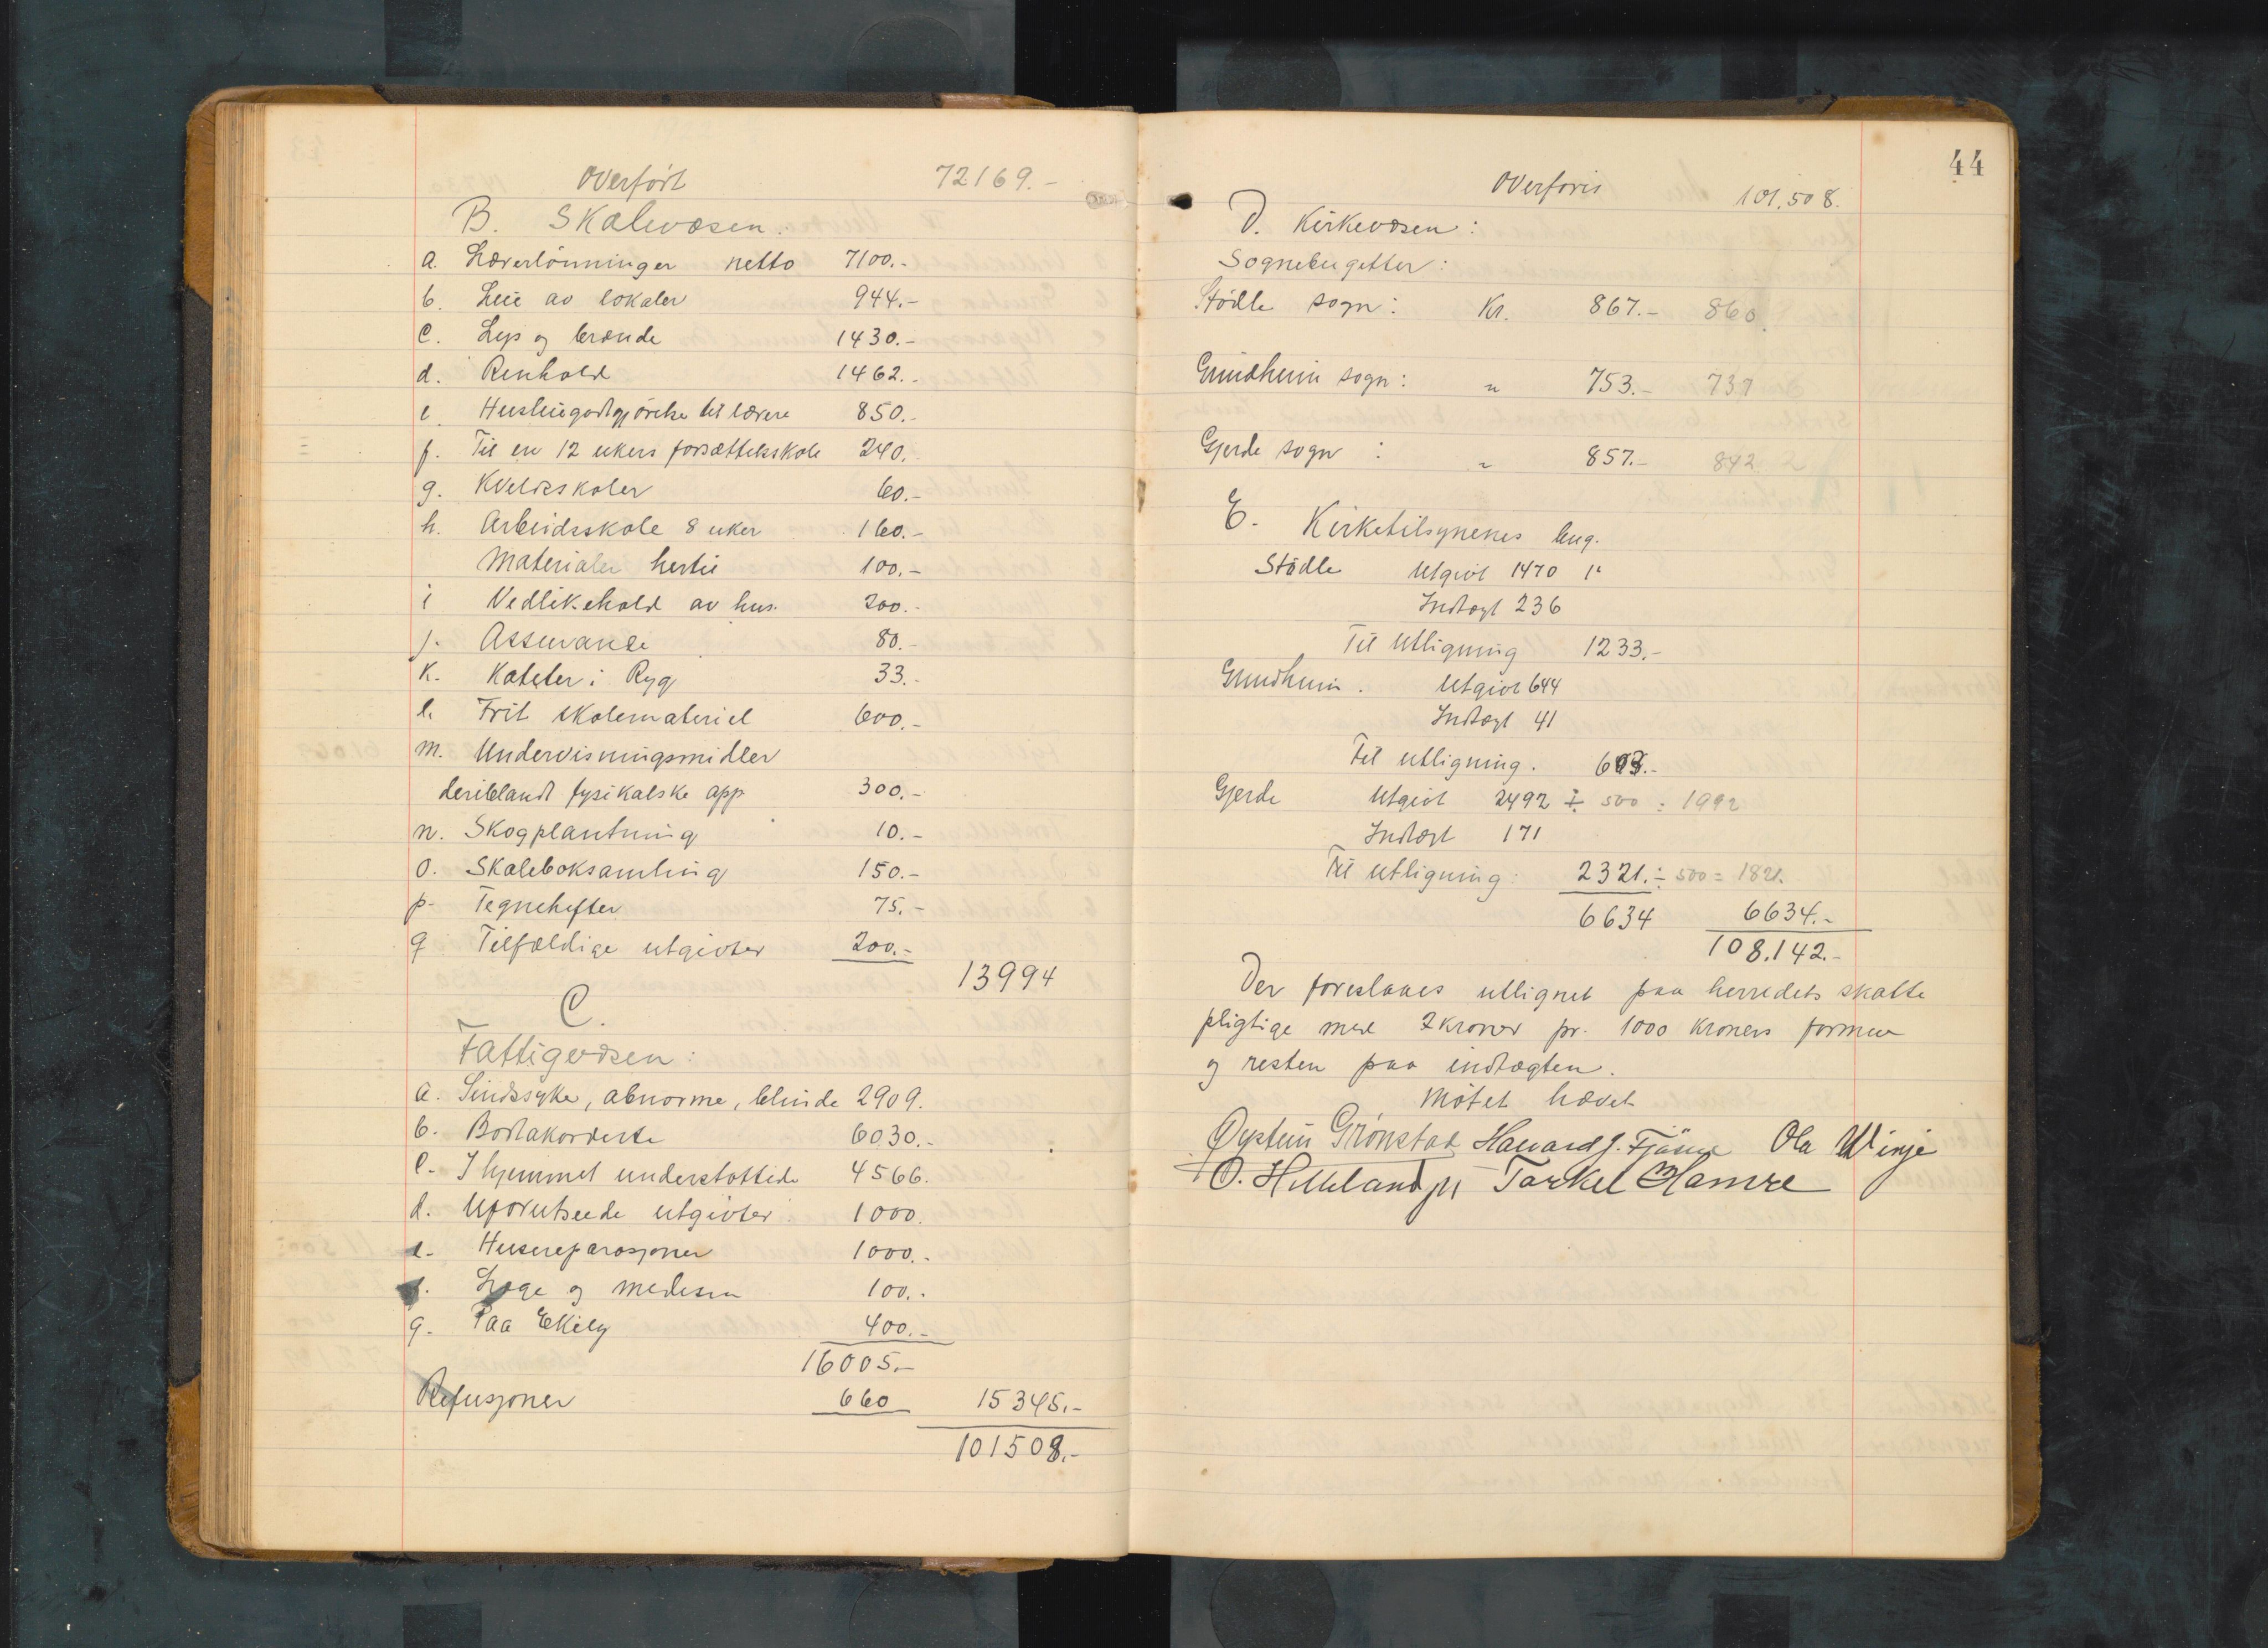 Overført 72169.-
B. Skolevæsen.
a. Lærerlönninger netto 7100.-
b. Leie av lokaler 944.-
c. Lys og brænde 1430.-
d. Renhold 1462.-
e. Husleiegodtgjörelse til lærere 850.-
f. Til en 12 ukers forsættelsskole 240.-
g. Kveldsskoler 60.-
h. Arbeidsskole 8 uker 160.-
Materialer hertil 100.-
i Vedlikehold av hus. 200.-
j. Assurance 80.-
k. Kateter i Ryg 33.-
l. Frit skolemateriel 600.-
m. Undervisningsmidler
deriblandt fysikalske app 300.-
n. Skogplantning 10.-
o. Skoleboksamling 150.-
p. Tegnehefter 75.-
q Tilfældige utgivter 200.-
13994
C.
Fattigvæsen:
a. Sindssyke, abnorme, blinde 2909.
b. Bortakorderte 6030.-
c. I hjemmet understøttede 4566.
d. Uforutseede utgivter. 1000.
e. Husereparasjoner 1000.-
f. Læge og medesin 100.-
g. Paa Ekely 400.-
16005.-
Refusjoner 660 15345.-
101508.-
44
Overføris 101.508.
D. Kirkevæsen:
Sognebugetter:
Stödle sogn: Kr. 867.- 860.
Grindheim sogn: " 753.- 737
Gjerde sogn : " 857.- 842
E. Kirketilsynenes bug.
Stödle Utgivt 1470
Indtægt 236
Til utligning 1233.-
Grindheim. Utgivt 644
Indtægt 41
Til utligning. 603.-
Gjerde Utgivt 2492 ÷ 500 = 1992
Indtægt 171
Til utligning: 2321.- ÷ 500 = 1821.
6634 6634.-
108.142.-
Der foreslaaes utlignet paa herredets skatte
pligtige med 2 kroner pr. 1000 kroners formue
og resten paa indtægten.
Mötet hævet
Øystein Grönstad Haavard J. Fjösne Ola Winje
O. Hetleland Torkel Hamre